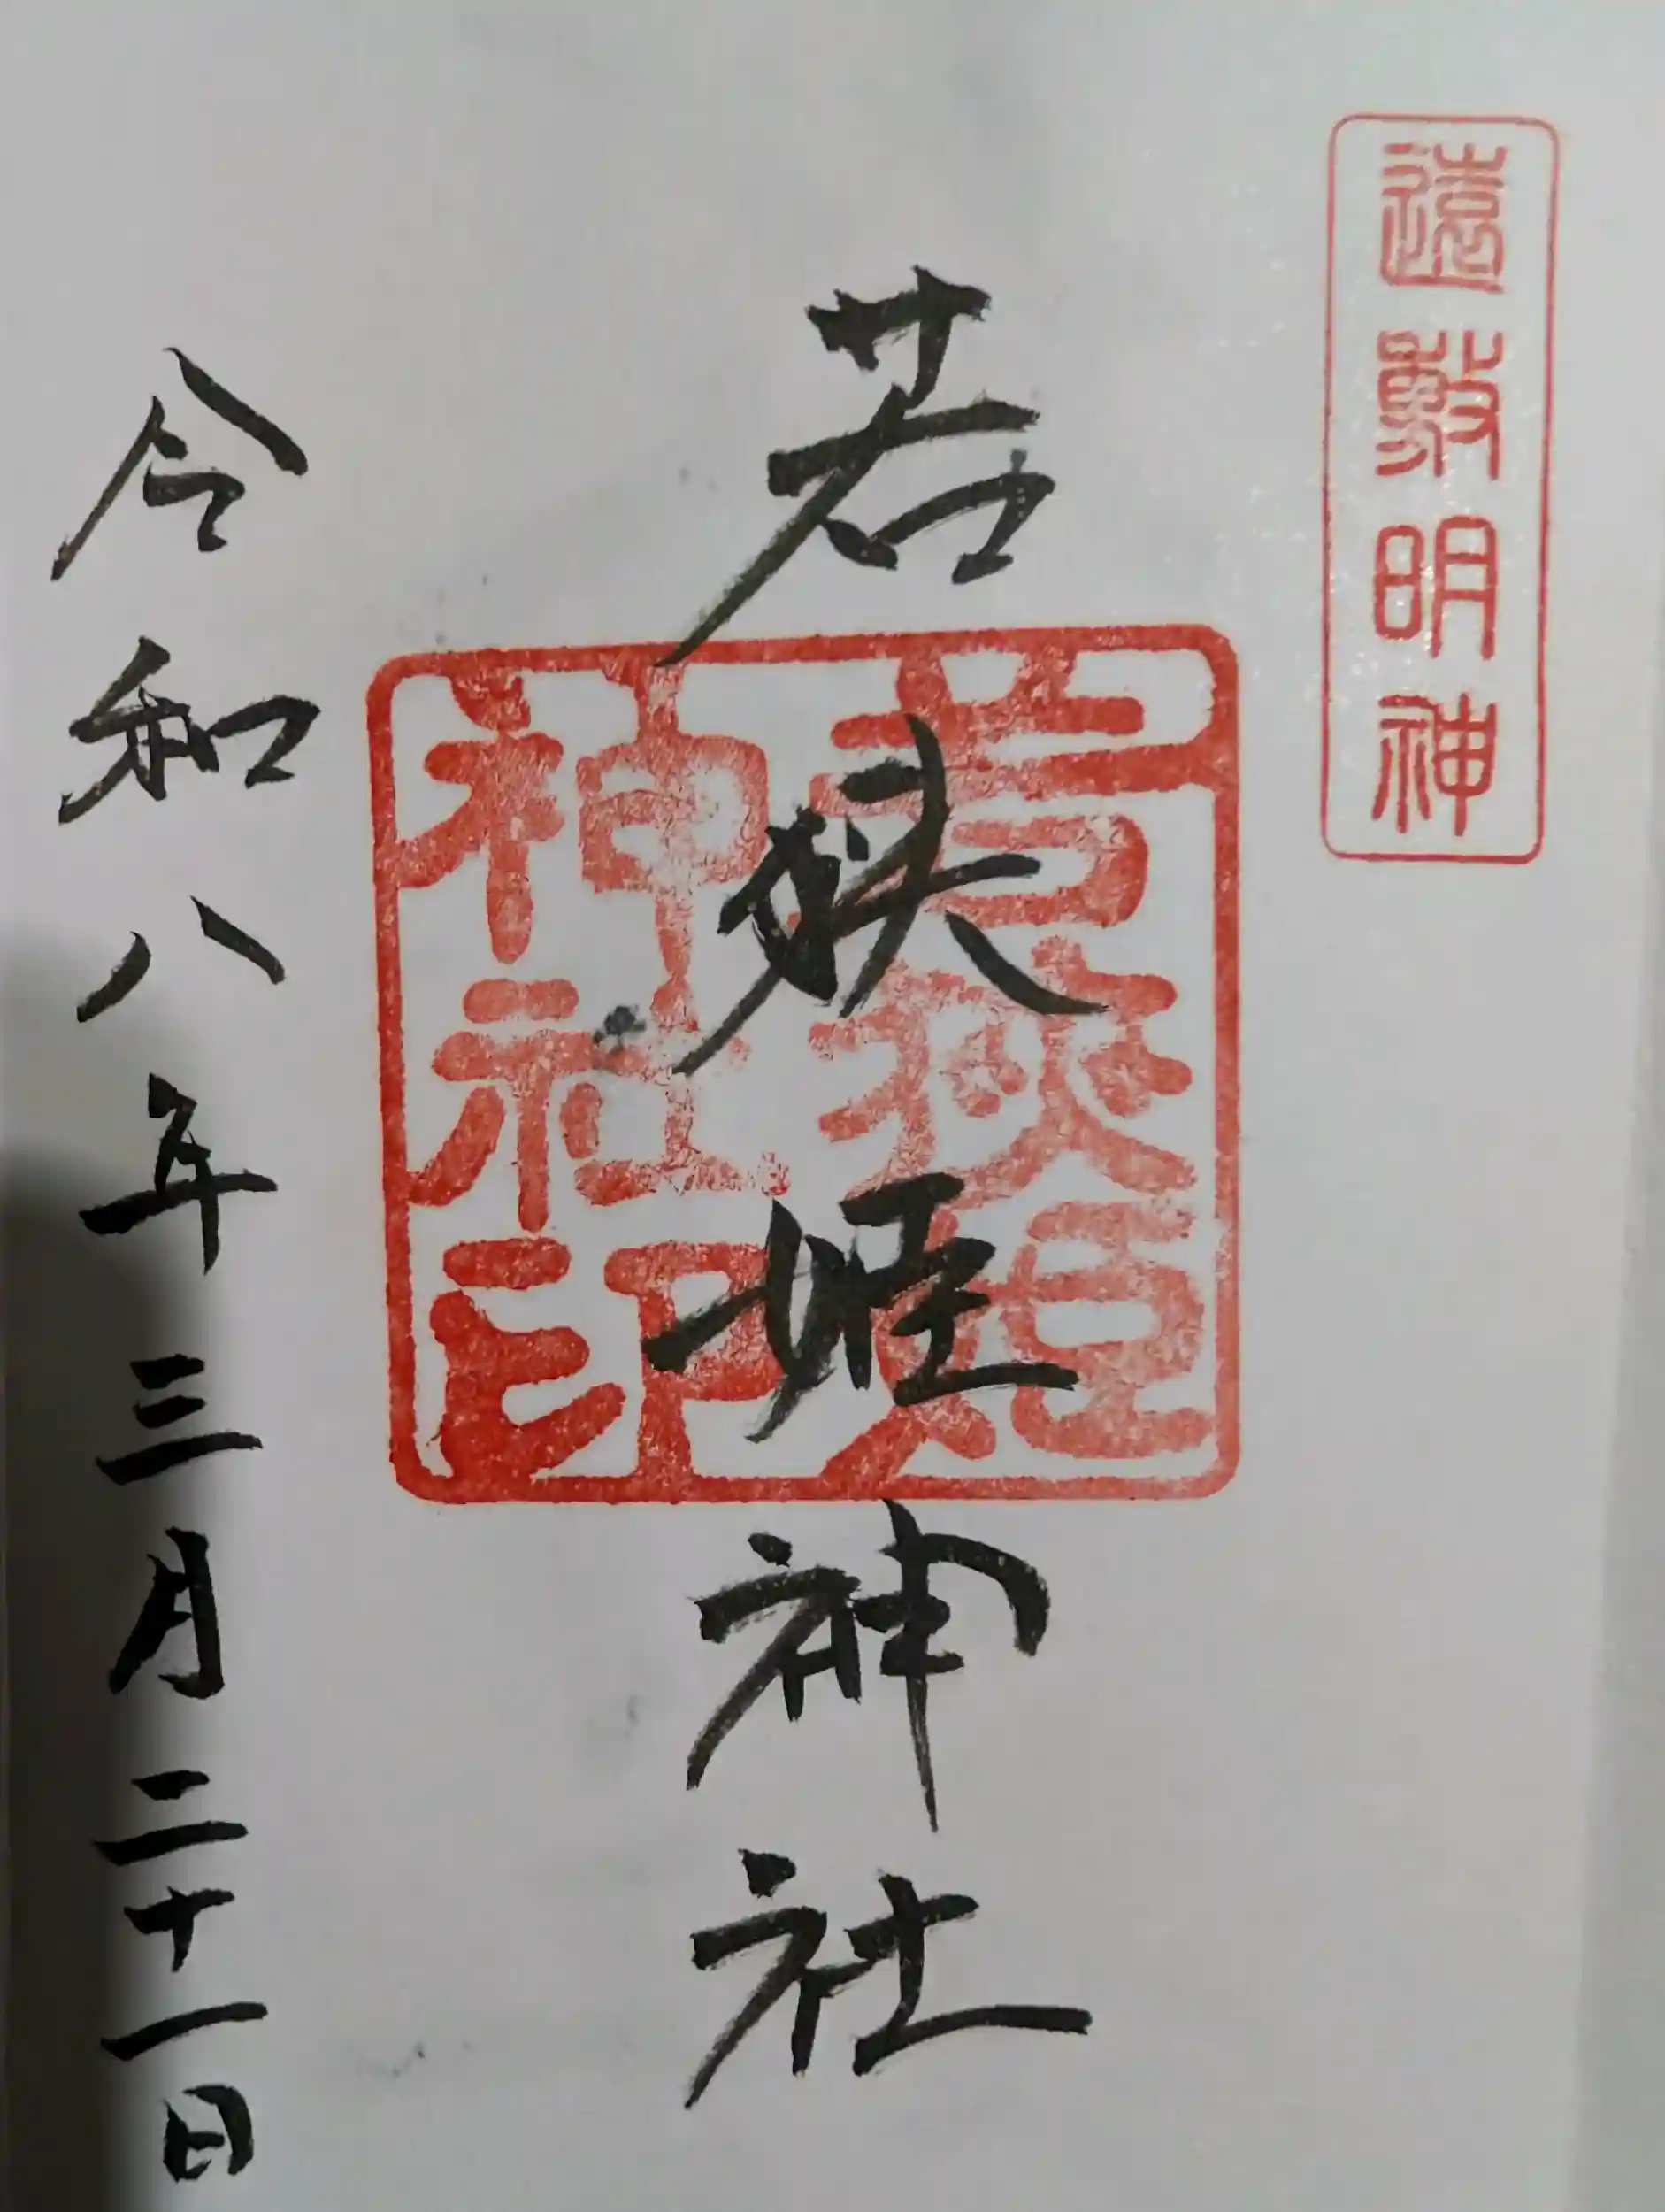 遠敷明神
若狹姫神社
若狹姫
神社印
令和八年三月二十一日